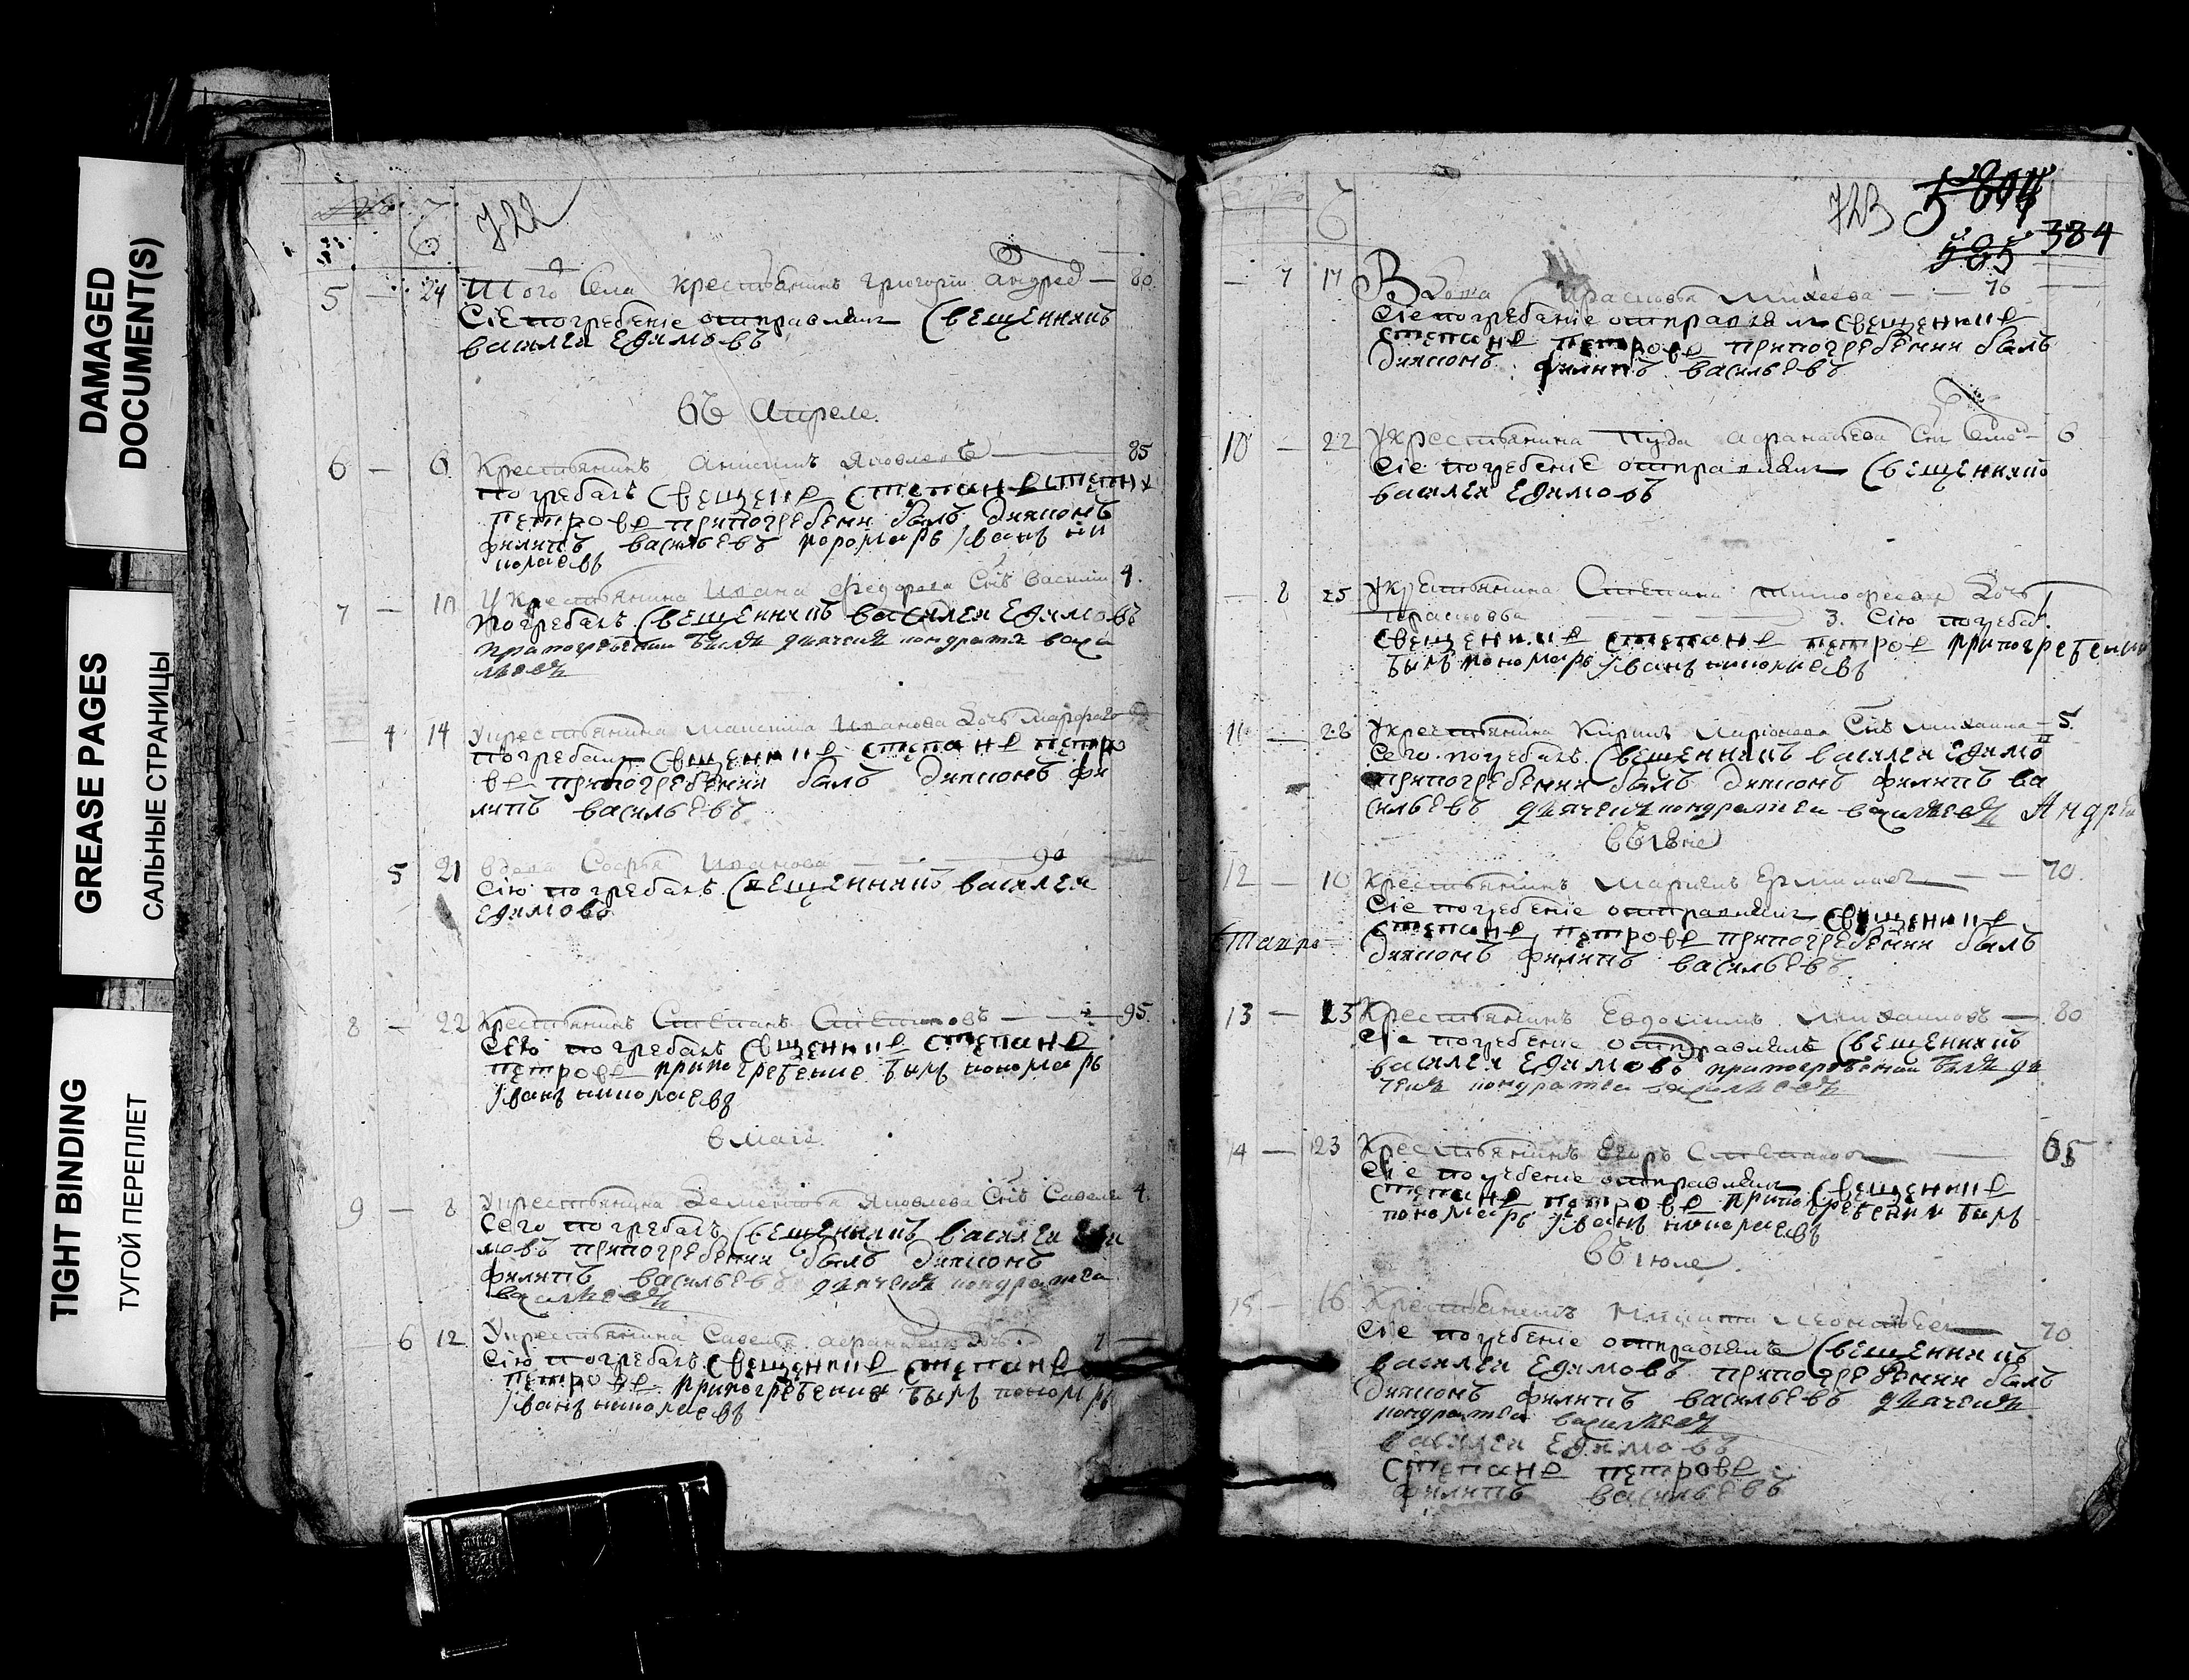 DAMAGED
DOCUMENT(S)
GREASE PAGES
САЛЬНЫЕ СТРАНИЦЫ
TIGHT BINDING
ТУГОЙ ПЕРЕПЛЕТ
722
5 — 24 Того села крестьянинъ григорїи андрее — 80
Сїе погребенїе отправлялъ свещенникъ
василеи Едимовъ
въ Апреле
6 — 6 Крестьянинъ яковлевъ — 85
погребалъ свещенникъ степанъ
петровъ припогребени былъ дияконъ
филипъ васильевъ пономарь Иванъ ни
колаевъ
7 — 10 У крестьянина Ивана федорова сынъ василии 4.
погребалъ свещенникъ василеи Едимовъ
припогребении былъ дьячекъ кондратеи васи
льевъ
4 14 У крестьянина максима Иванова дочь
погребалъ свещенникъ степанъ петро
въ припогребении былъ дияконъ фи
липъ васильевъ
5 21 вдова Софья Иванова — 90
сїю погребалъ свещенникъ василеи
Едимовъ
8 — 22 Крестьянинъ Степанъ Степановъ — 95.
сего погребалъ свещенникъ степанъ
петровъ припогребение былъ пономарь
Иванъ николаевъ
в маїе
9 — 8 У крестьянина яковлева сынъ Савелеи 4.
Сего погребалъ свещенникъ василеи Еди
мовъ припогребении былъ дияконъ
филипъ васильевъ дьячекъ кондратеи
васильевъ
6 12 У крестьянина Савелья дочь
сїю погребалъ свещенникъ степанъ
петровъ припогребение былъ пономарь
Иванъ николаевъ
723 5804
585 384
— 7 17 Вдова Михеева — 76
Сїе погребание отправлялъ свещенникъ
степанъ петровъ припогребении былъ
дияконъ филипъ васильевъ
10 — 22 У крестьянина афанасьева сынъ — 6
Сїе погребенїе отправлялъ свещенникъ
василеи Едимовъ
— 8 25 У крестьянина Степана тимофеева дочь
3. Сїю погребал
свещенникъ степанъ петров припогребении
былъ пономарь Иванъ николаевъ
11 — 28 У крестьянина Кирила Ларионова сынъ михаила — 5
Сего погребалъ свещенникъ василеи Едимо
припогребении былъ дияконъ филипъ ва
сильевъ дьячекъ кондратеи васильевъ Андре
въ Iюне
12 — 10 Крестьянинъ — 70.
Сїе погребенїе отправлялъ свещенникъ
степанъ петровъ припогребении былъ
дияконъ филипъ васильевъ
13 — 13 Крестьянинъ Евдокимъ михаиловъ — 80
Сїе погребенїе отправлялъ свещенникъ
василеи Едимовъ припогребении былъ дья
чекъ кондратеи васильевъ
14 — 23 Крестьянинъ Егоръ Степановъ — 65
Сїе погребенїе отправлялъ свещенникъ
степанъ петровъ припогребении былъ
пономарь Иванъ николаевъ
въ iюле
15 — 16 Крестьянинъ Никита Леонтьевъ — 70
Сїе погребенїе отправлялъ свещенникъ
василеи Едимовъ припогребении былъ
дияконъ филипъ васильевъ дьячекъ
кондратеи васильевъ
василеи Едимовъ
степанъ петровъ
филипъ васильевъ